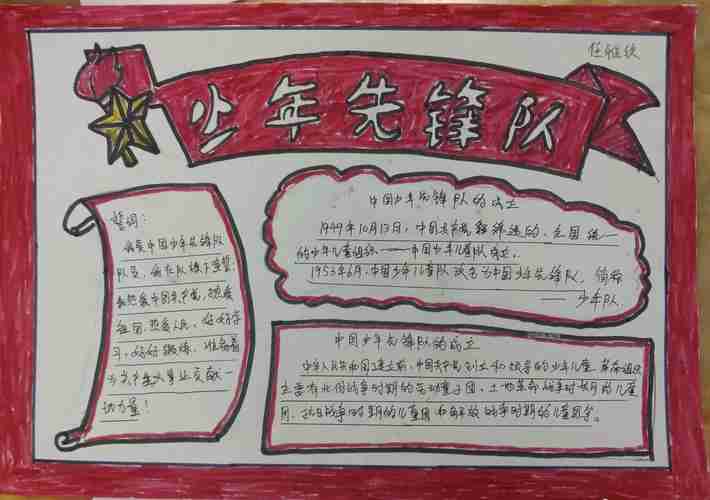 任雅
少年先锋队
誓词：
我是中国少年先锋队
队员，我在队旗下宣誓，
我热爱中国共产党，热爱
祖国，热爱人民，好好学
习，好好锻炼，准备着
为共产主义事业贡献一
切力量！
中国少年先锋队的成立
1949年10月13日，中国共产党 的，全国统一
的少年儿童组织——中国少年儿童队成立。
1953年6月，中国少年儿童队改名为中国少年先锋队，简称
——少年队
中国少年先锋队的成立
中华人民共和国建立前，中国共产党创立和领导的少年儿童革命组织
主要有北伐战争时期的劳动童子团，土地革命战争时期的儿童
团，抗日战争时期的儿童团和解放战争时期的儿童团